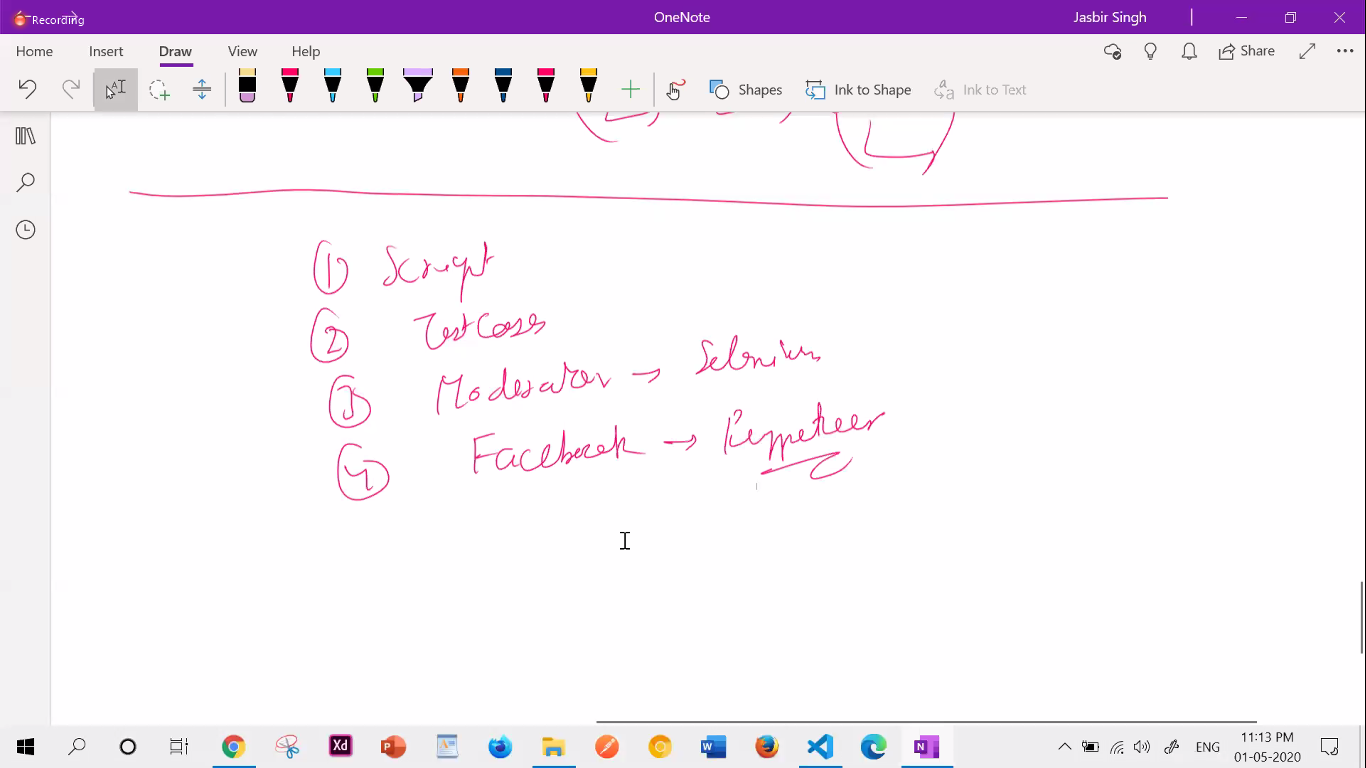 Recording
OneNote
Jasbir Singh
Home Insert Draw View Help
Share
Shapes Ink to Shape Ink to Text
1 Script
2 TestCases
3 Moderator → Selenium
4 Facebook → Puppeteer
Xd
ENG
11:13 PM
01-05-2020